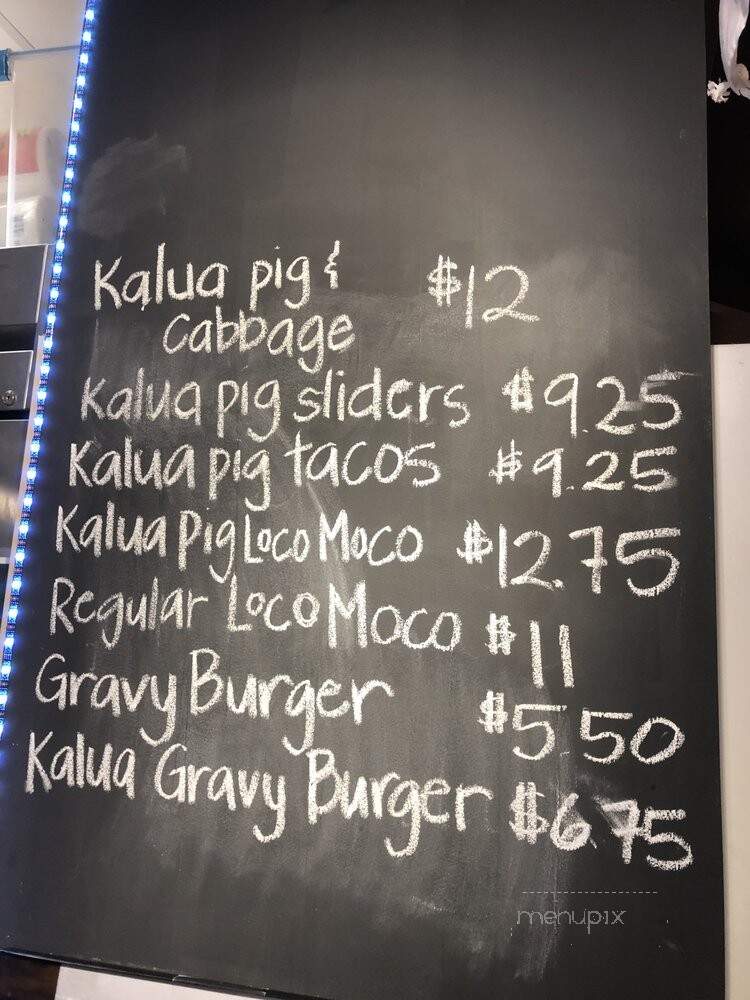 Kalua pig & $12
Cabbage
Kalua pig sliders $9.25
Kalua pig tacos $9.25
Kalua Pig Loco Moco $12.75
Regular Loco Moco $11
Gravy Burger $5.50
Kalua Gravy Burger $6.75
menupix